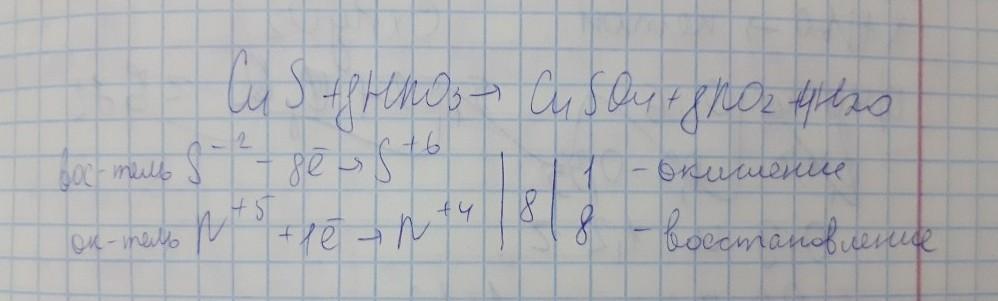 CuS + 8HNO3 → CuSO4 + 8NO2 + 4H2O
вос-тель S⁻² - 8ē → S⁺⁶ | | 1 - окисление
ок-тель N⁺⁵ + 1ē → N⁺⁴ | 8 | 8 - восстановление